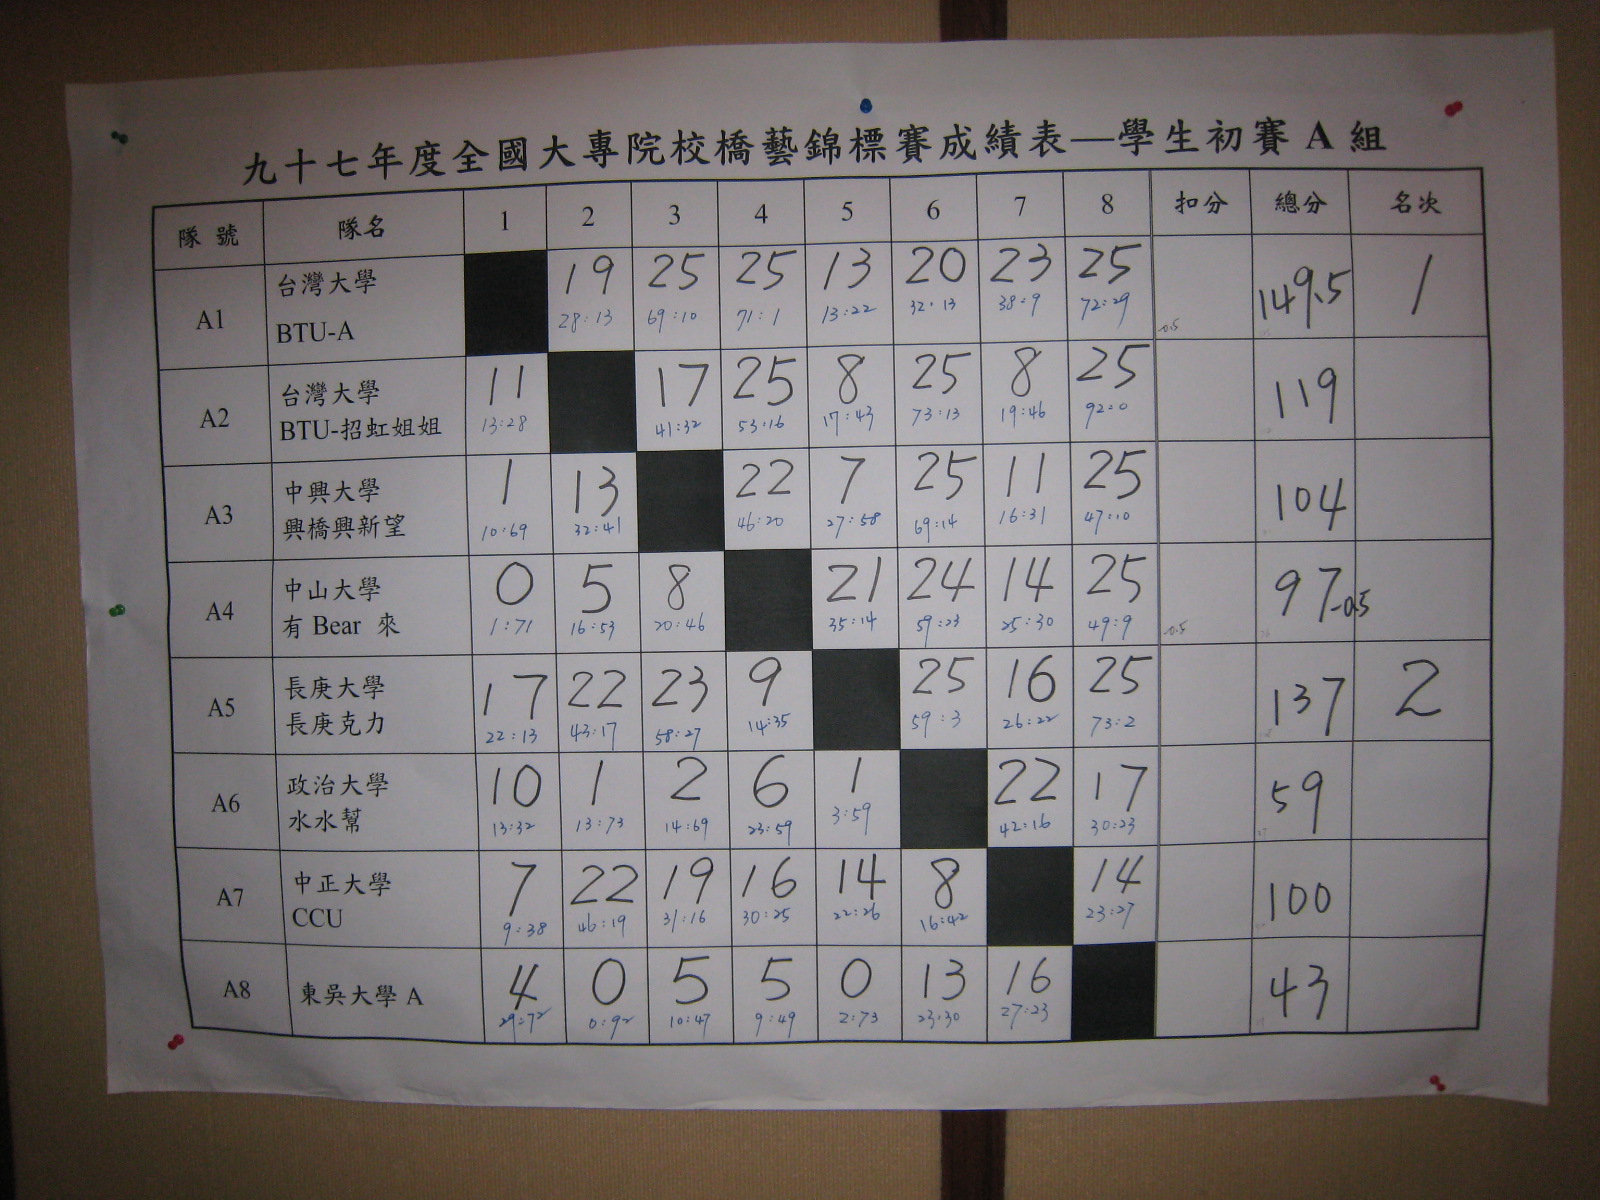 九十七年度全國大專院校橋藝錦標賽成績表—學生初賽 A 組
隊 號 隊名 1 2 3 4 5 6 7 8 扣分 總分 名次
A1 台灣大學 19 25 25 13 20 23 25 149.5 1
BTU-A 28:13 69:10 71:1 13:22 32:13 38:9 72:29 -0.5
A2 台灣大學 11 17 25 8 25 8 25 119
BTU-招虹姐姐 13:28 41:32 53:16 17:43 73:13 19:46 92:0
A3 中興大學 1 13 22 7 25 11 25 104
興橋興新望 10:69 32:41 46:20 27:58 69:14 16:31 47:10
A4 中山大學 0 5 8 21 24 14 25 97-0.5
有 Bear 來 1:71 16:53 20:46 35:14 59:23 25:30 49:9 -0.5
A5 長庚大學 17 22 23 9 25 16 25 137 2
長庚克力 22:13 43:17 58:27 14:35 59:3 26:22 73:2
A6 政治大學 10 1 2 6 1 22 17 59
水水幫 13:32 13:73 14:69 23:59 3:59 42:16 30:23
A7 中正大學 7 22 19 16 14 8 14 100
CCU 9:38 46:19 31:16 30:25 22:26 16:42 23:27
A8 東吳大學 A 4 0 5 5 0 13 16 43
29:72 0:92 10:47 9:49 2:73 23:30 27:23